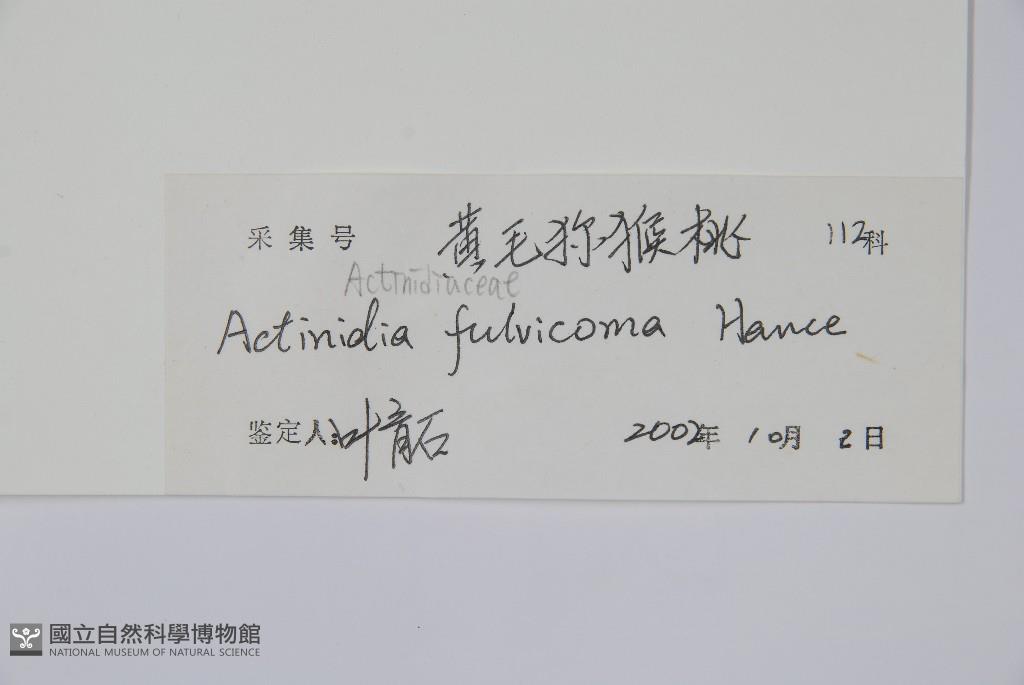 采集号 黄毛猕猴桃 112科
Actinidiaceae
Actinidia fulvicoma Hance
鉴定人:叶育石 2002年 10月 2日
國立自然科學博物館
NATIONAL MUSEUM OF NATURAL SCIENCE